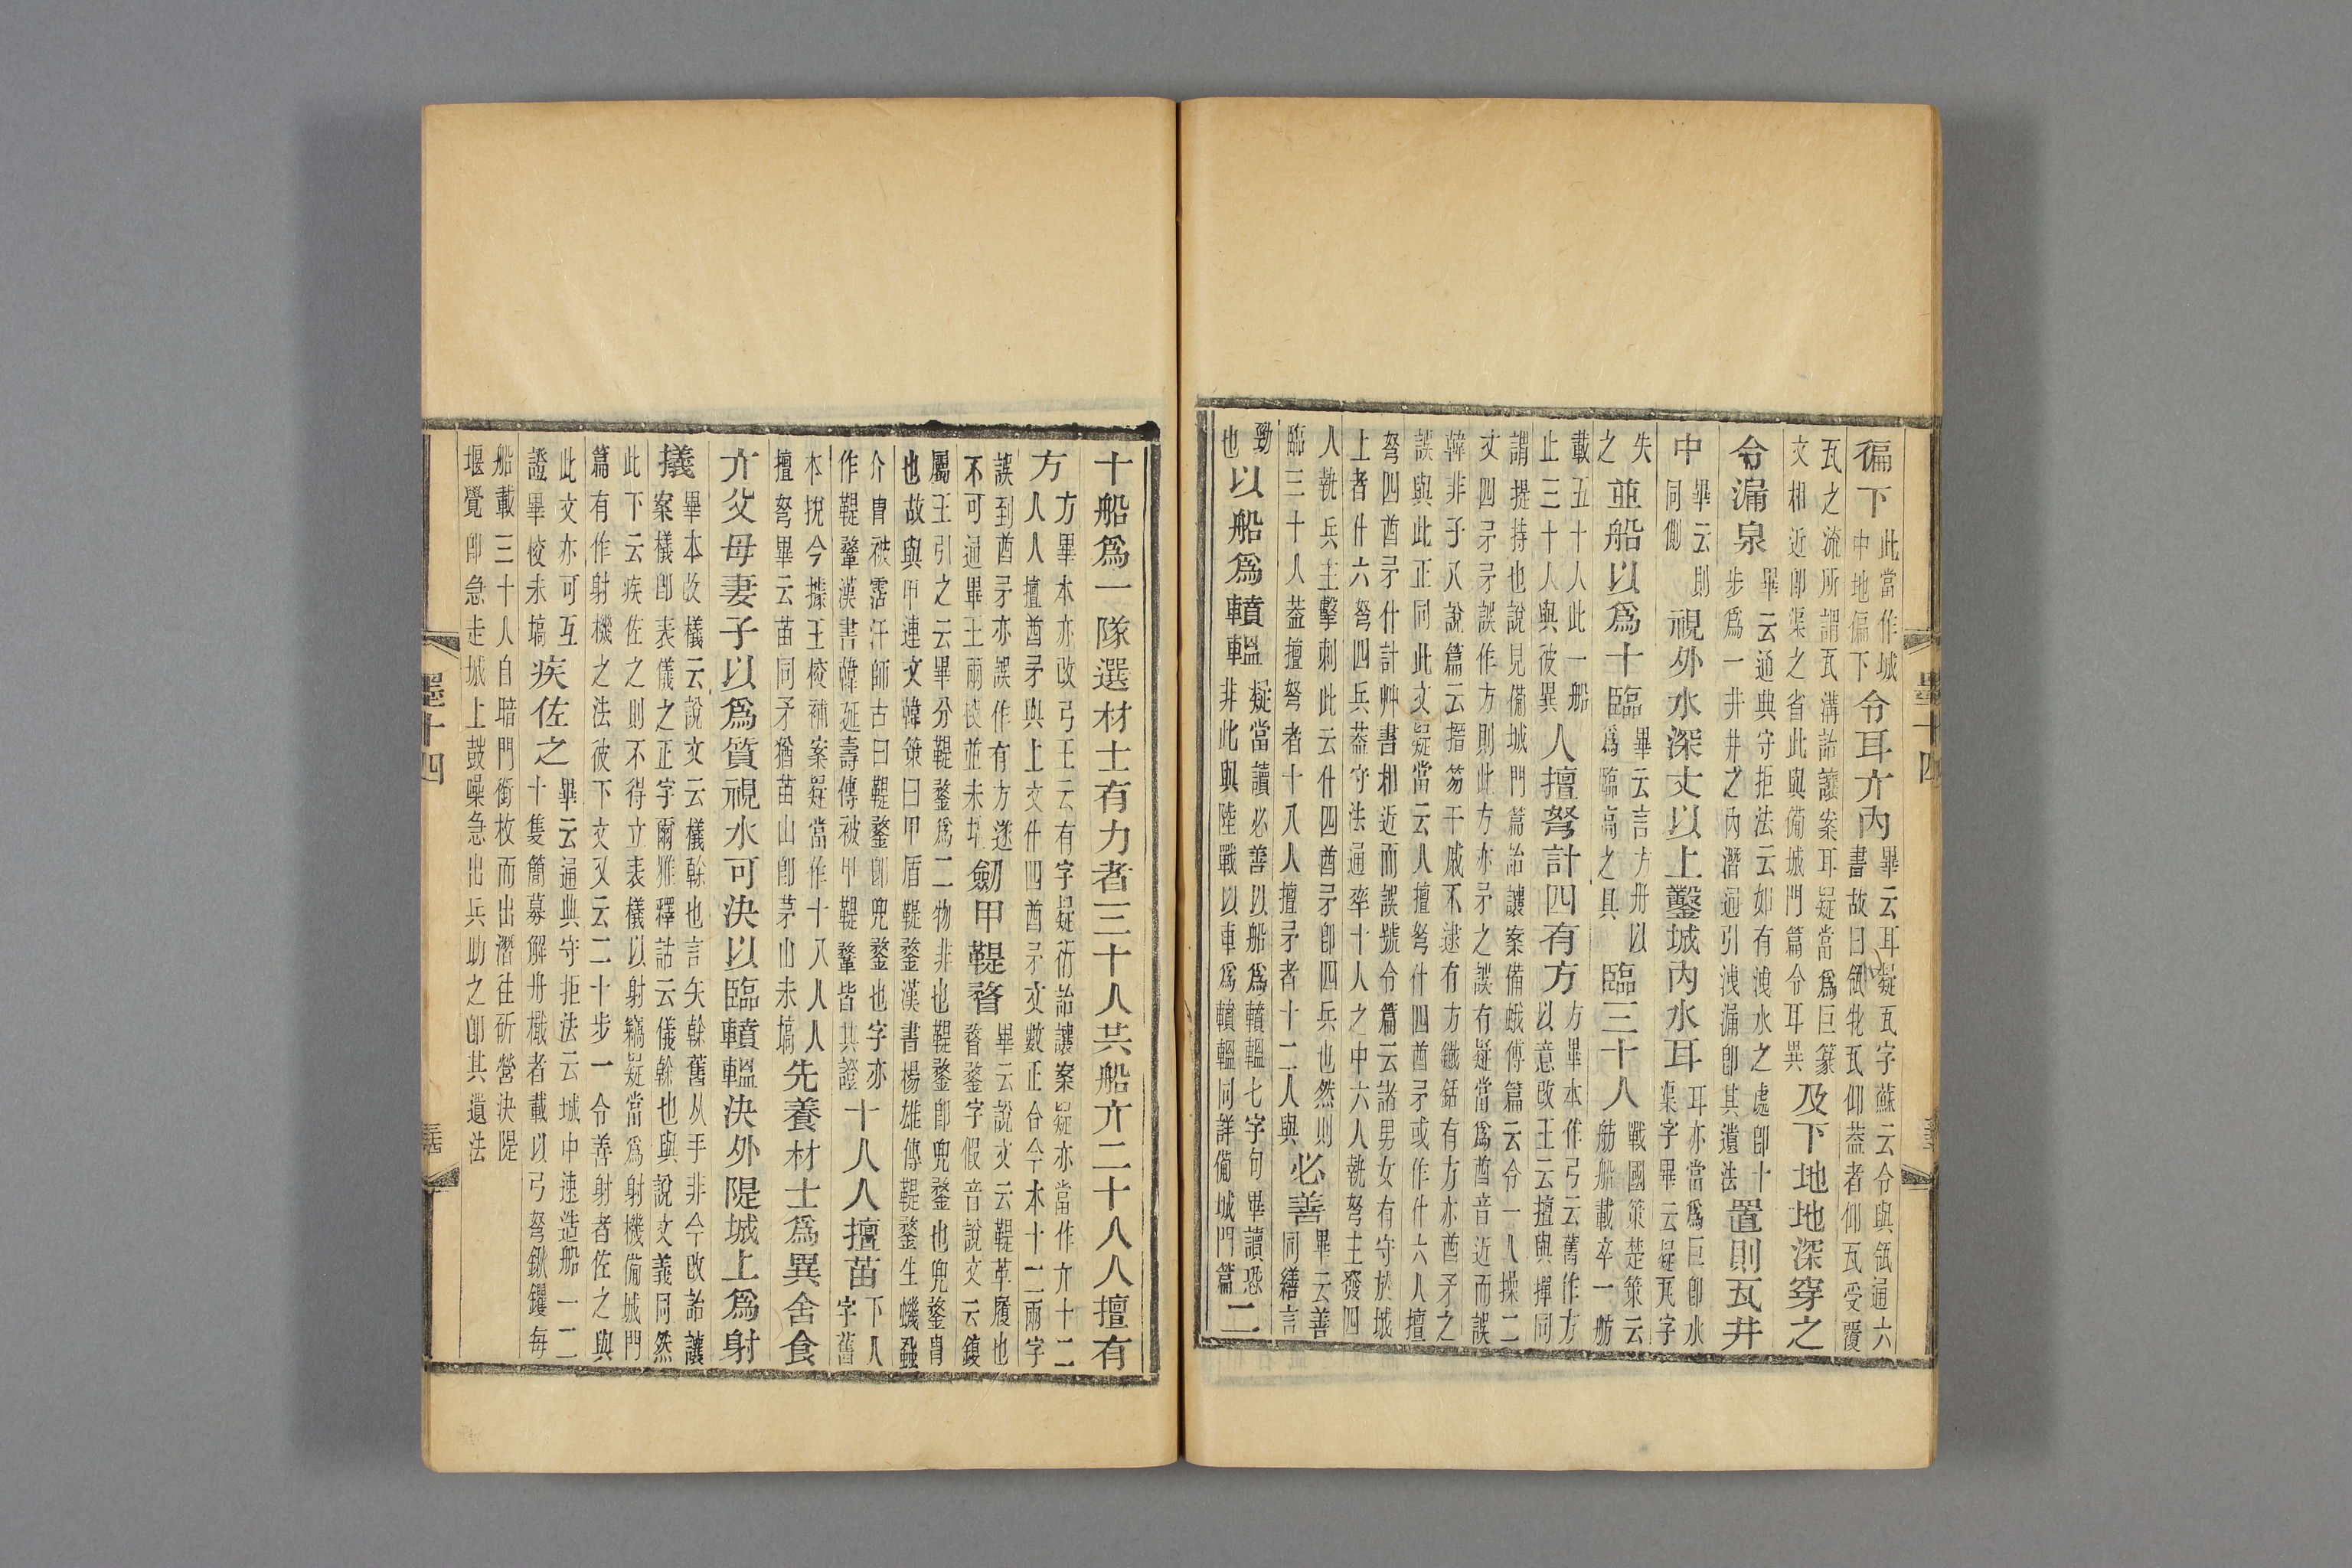 徧下此當作城
中地偏下令耳亣內畢云耳疑瓦字蘇云令與瓴通六
書故曰瓴牝瓦仰葢者仰瓦受覆
瓦之流所謂瓦溝詒讓案耳疑當爲巨篆
文相近卽渠之省此與備城門篇令耳異及下地地深穿之
令漏泉畢云通典守拒法云如有洩水之處卽十
步爲一井井之內潛通引洩漏卽其遺法置則瓦井
中畢云則
同側視外水深丈以上鑿城內水耳耳亦當爲巨卽水
渠字畢云疑瓦字
失
之並船以爲十臨畢云言方舟以
爲臨高之具臨三十人戰國策楚策云
舫船載卒一舫
載五十人此一船
止三十人與彼異人擅弩計四有方方畢本作弓云舊作方
以意改王云擅與撣同
謂提持也說見備城門篇詒讓案備蛾傅篇云令一人操二
丈四矛矛誤作方則此方亦矛之誤有疑當爲酋音近而誤
韓非子八說篇云搢笏干戚不逮有方鐵銛有方亦酋矛之
誤與此正同此文疑當云人擅弩什四酋矛或作什六人擅
弩四酋矛什計艸書相近而誤號令篇云諸男女有守於城
上者什六弩四兵葢守法通率十人之中六人執弩主發四
人執兵主擊刺此云什四酋矛卽四兵也然則
臨三十人葢擅弩者十八人擅矛者十二人與必善畢云善
同繕言
勁
也以船爲轒轀疑當讀必善以船爲轒轀七字句畢讀恐
非此與陸戰以車爲轒轀同詳備城門篇二
十船爲一隊選材士有力者三十人共船亣二十人人擅有
方方畢本亦改弓王云有字疑衍詒讓案疑亦當作亣十二
人人擅酋矛與上文什四酋矛文數正合今本十二兩字
誤到酋矛亦誤作有方遂
不可通畢王兩校並未塙劒甲鞮瞀畢云說文云鞮革履也
瞀鍪字假音說文云鍑
屬王引之云畢分鞮鍪爲二物非也鞮鍪卽兜鍪也兜鍪冑
也故與甲連文韓策曰甲盾鞮鍪漢書楊雄傳鞮鍪生蟣蝨
介冑被霑汗師古曰鞮鍪卽兜鍪也字亦
作鞮鞪漢書韓延壽傳被甲鞮鞪皆其證十人人擅苗下人
字舊
本挩今據王校補案疑當作十八人人
擅弩畢云苗同矛猶苗山卽茅山未塙先養材士爲異舍食
亣父母妻子以爲質視水可決以臨轒轀決外隄城上爲射
㩘畢本改檥云說文云檥榦也言矢榦舊从手非今改詒讓
案檥卽表儀之正字爾雅釋詁云儀榦也與說文義同然
此下云疾佐之則不得立表檥以射竊疑當爲射機備城門
篇有作射機之法彼下文又云二十步一令善射者佐之與
此文亦可互
證畢校未塙疾佐之畢云通典守拒法云城中速造船一二
十隻簡募解舟檝者載以弓弩鍬钁每
船載三十人自暗門銜枚而出潛往斫營決隄
堰覺卽急走城上鼓噪急出兵助之卽其遺法
墨十四